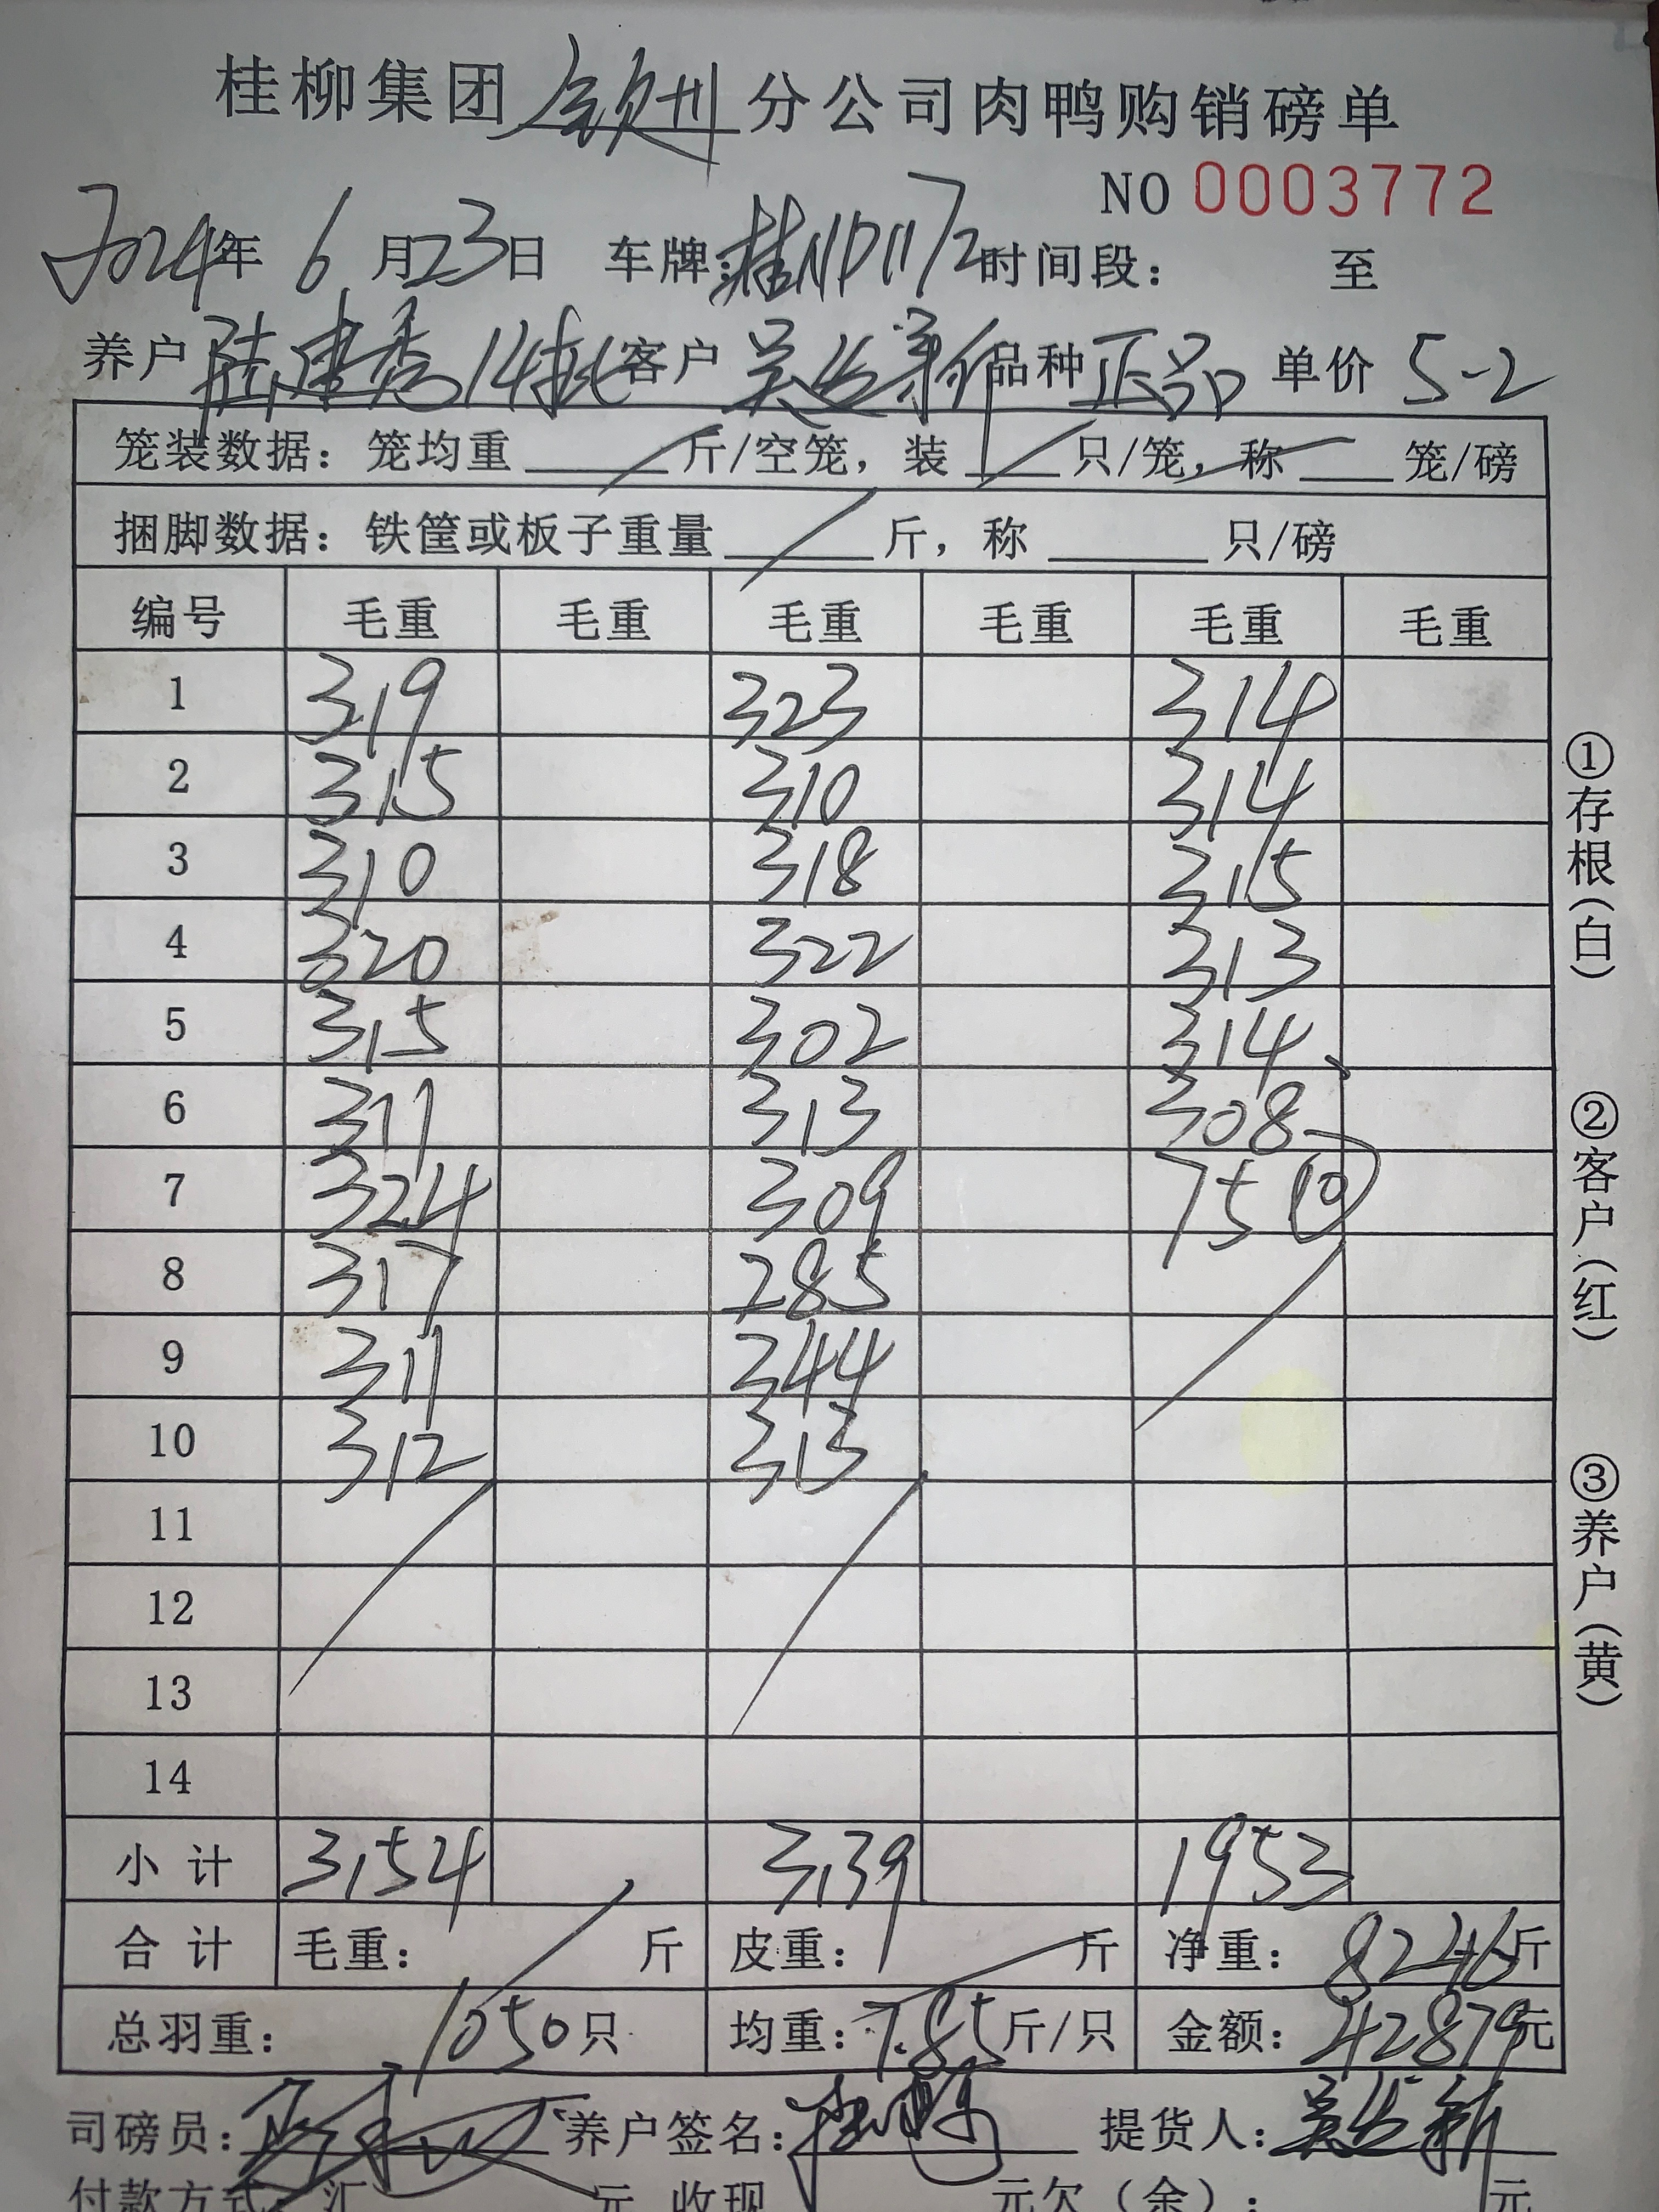 桂柳集团钦州分公司肉鸭购销磅单
NO 0003772
2024年 6 月23日 车牌:桂ND1172时间段: 至
养户 陆建秀14批 客户 吴 新 品种 正品 单价 5-2
笼装数据: 笼均重 斤/空笼, 装 只/笼, 称 笼/磅
捆脚数据: 铁筐或板子重量 斤, 称 只/磅
编号 毛重 毛重 毛重 毛重 毛重 毛重
1 319 323 314
2 315 310 314
3 310 318 315
4 320 322 313
5 315 302 314
6 311 313 308
7 324 309 75 ⑩
8 317 285
9 311 344
10 312 313
11
12
13
14
小计 3154 3139 1953
合计 毛重: 斤 皮重: 斤 净重: 8246斤
总羽重: 1050只 均重: 7.85斤/只 金额: 42879元
司磅员: 养户签名: 提货人: 吴 新
付款方式: 汇 元 收现 元欠(余): 元
①存根(白)
②客户(红)
③养户(黄)